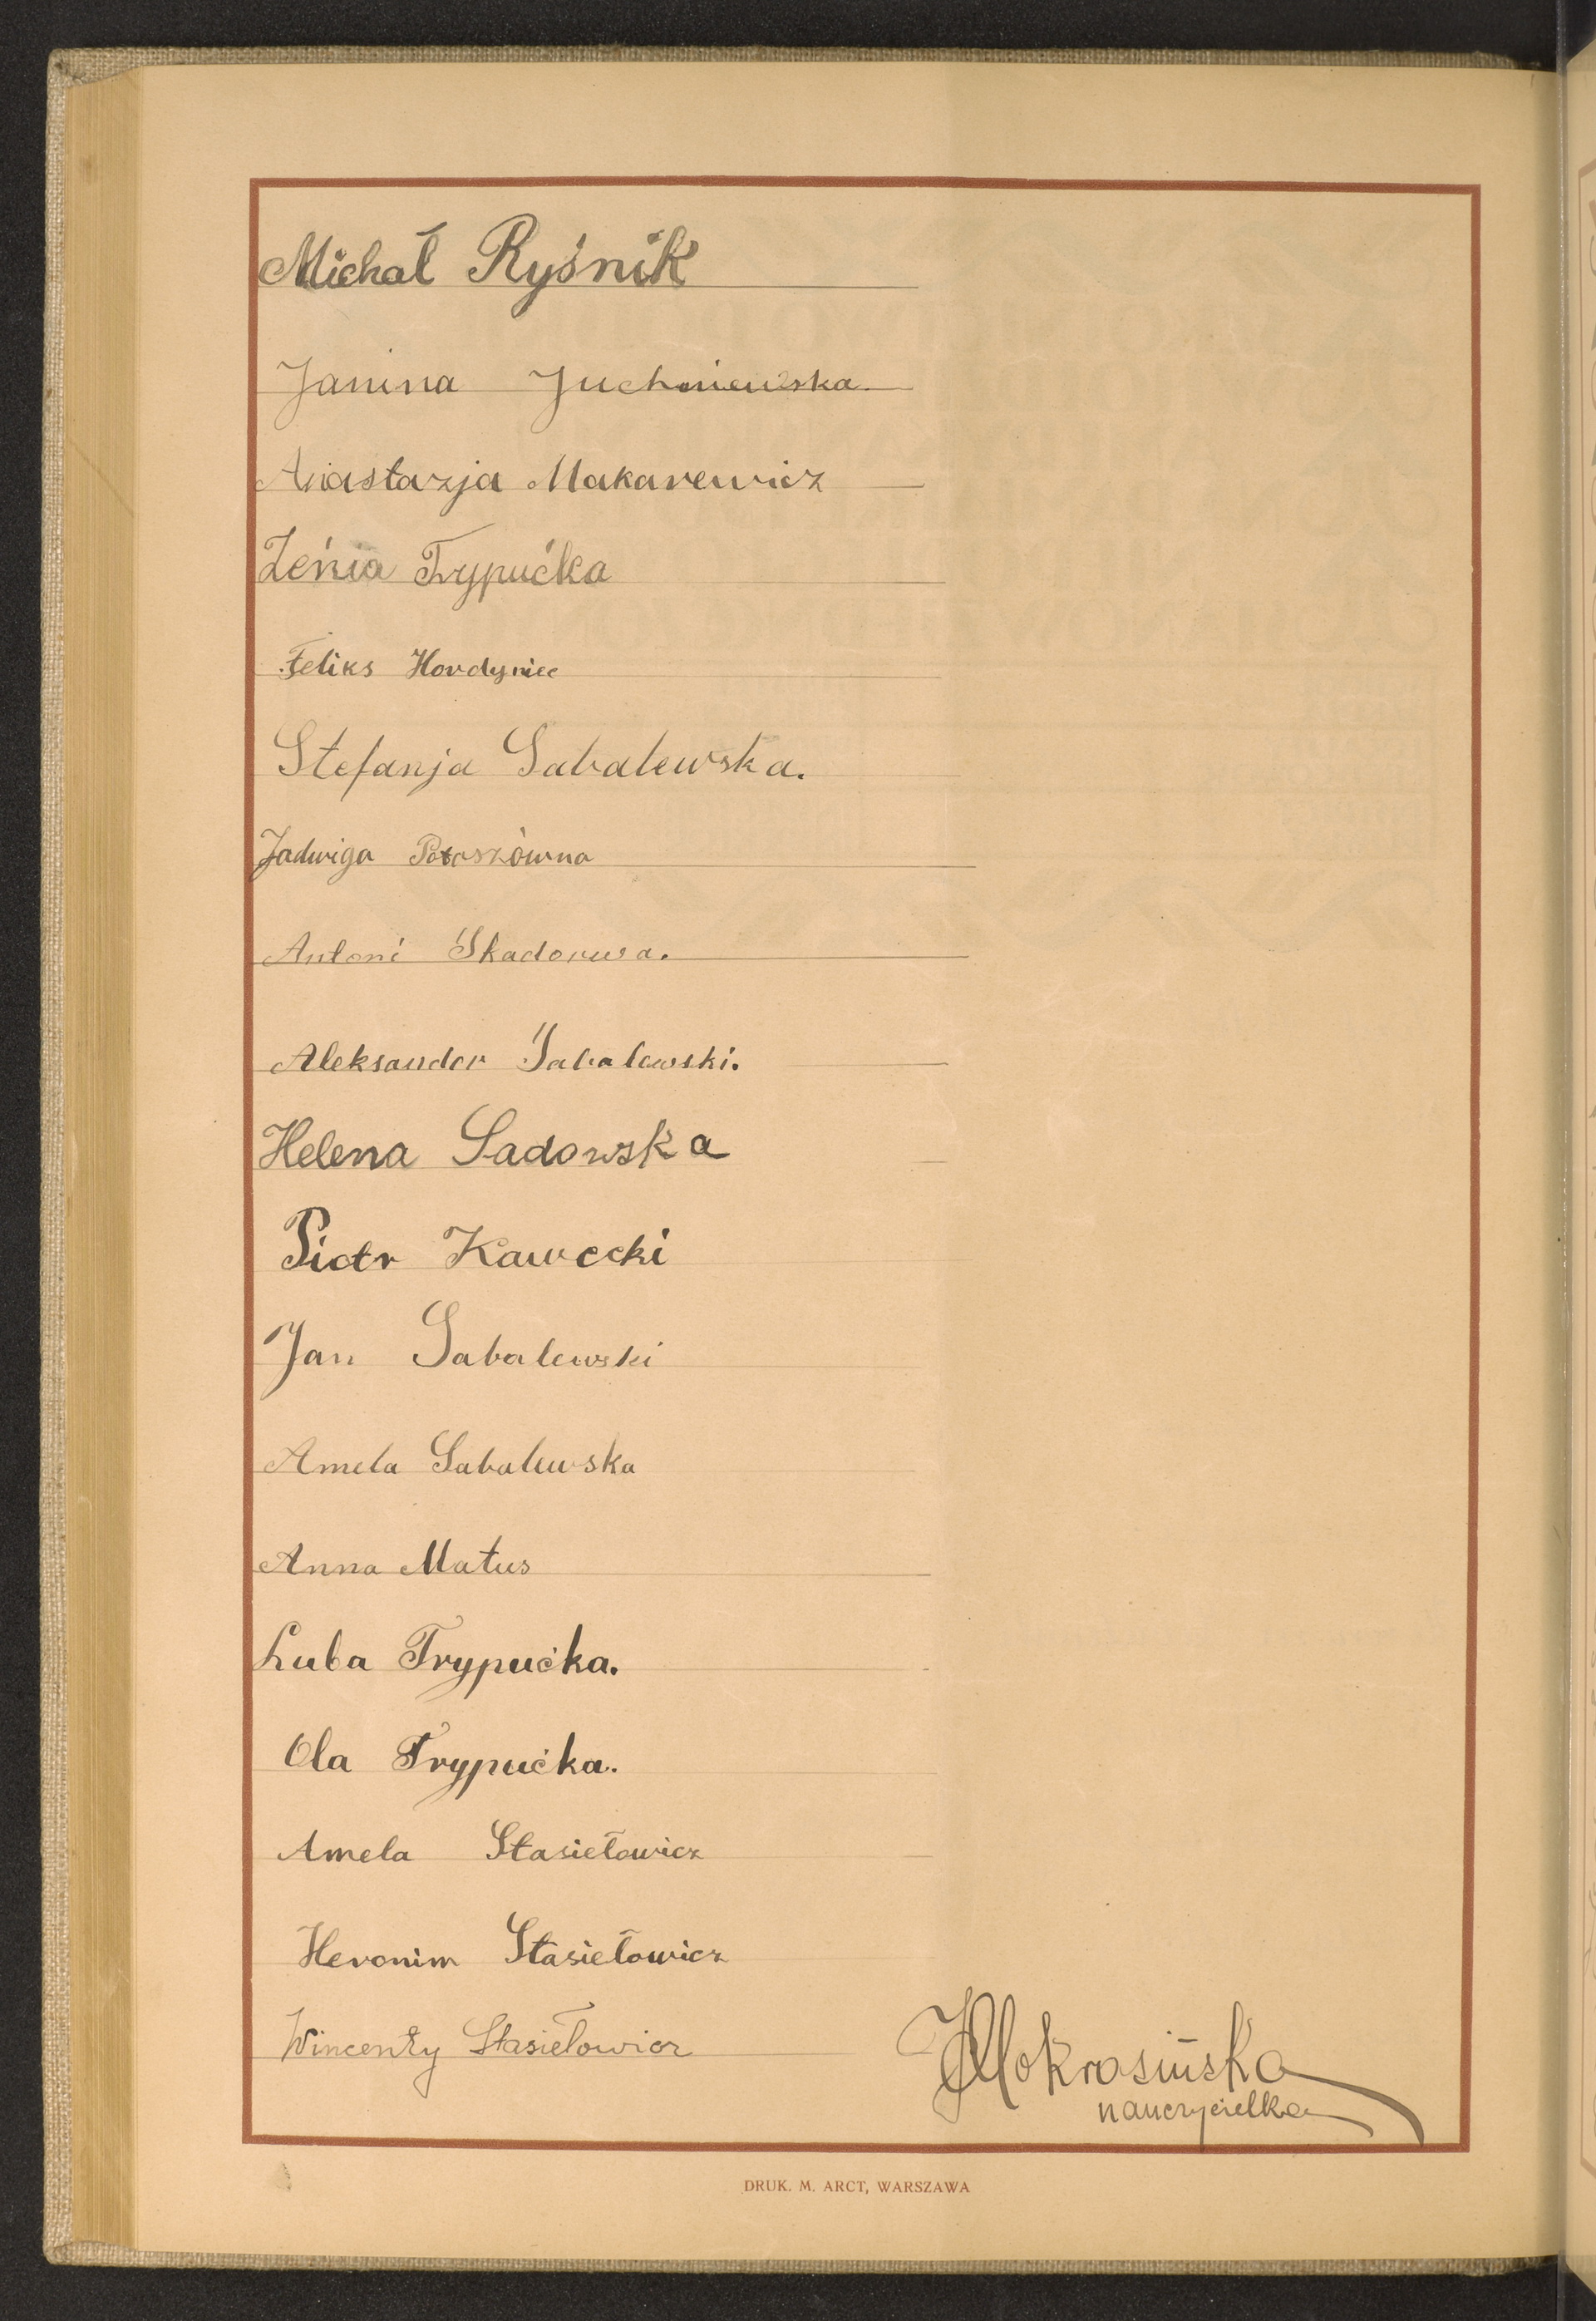 Michał Ryśnik
Janina Juchniewska.
Anastazja Makarewicz
Żenia Trypućka
Feliks Hordyniec
Stefanja Sabalewska.
Jadwiga Potoszówna
Antoni Skadorwa.
Aleksander Sabalewski.
Helena Sadowska
Piotr Kawecki
Jan Sabalewski
Amela Sabalewska
Anna Matus
Luba Trypućka.
Ola Trypućka.
Amela Stasiełowicz
Heronim Stasiełowicz
Wincenty Stasiełowicz
Mokrasińska
nauczycielka
DRUK. M. ARCT, WARSZAWA